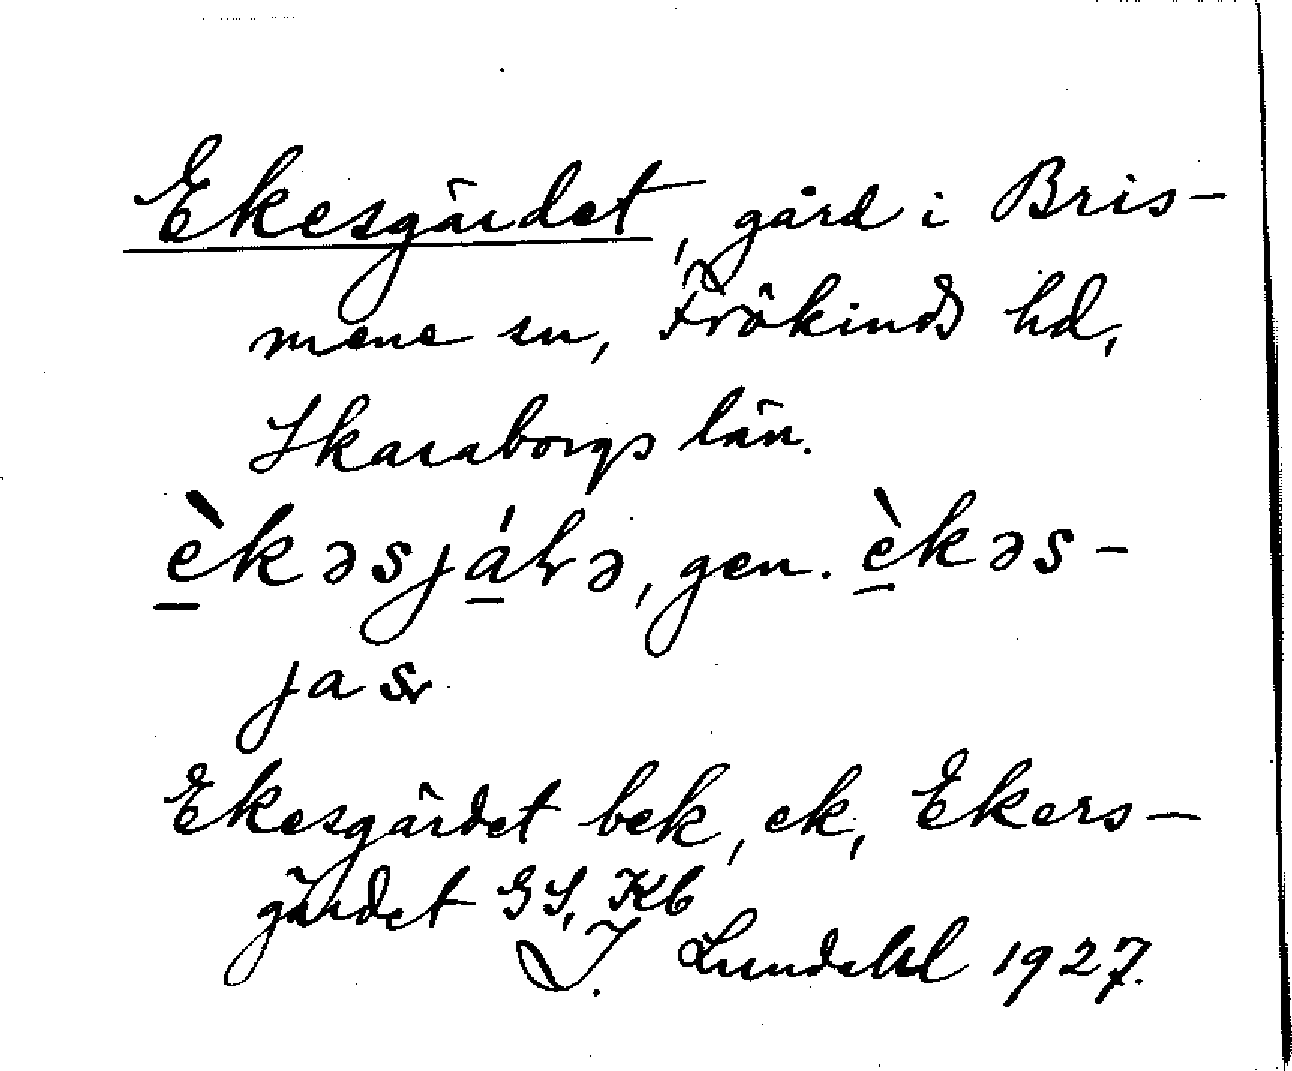 Ekesgärdet, gård i Bris-
mene sn, Frökinds hd,
Skaraborgs län.
èkəsjálə, gen. èkəs-
jas
Ekesgärdet bek, ek, Ekers-
gärdet GS, Kb
I. Lundahl 1927.